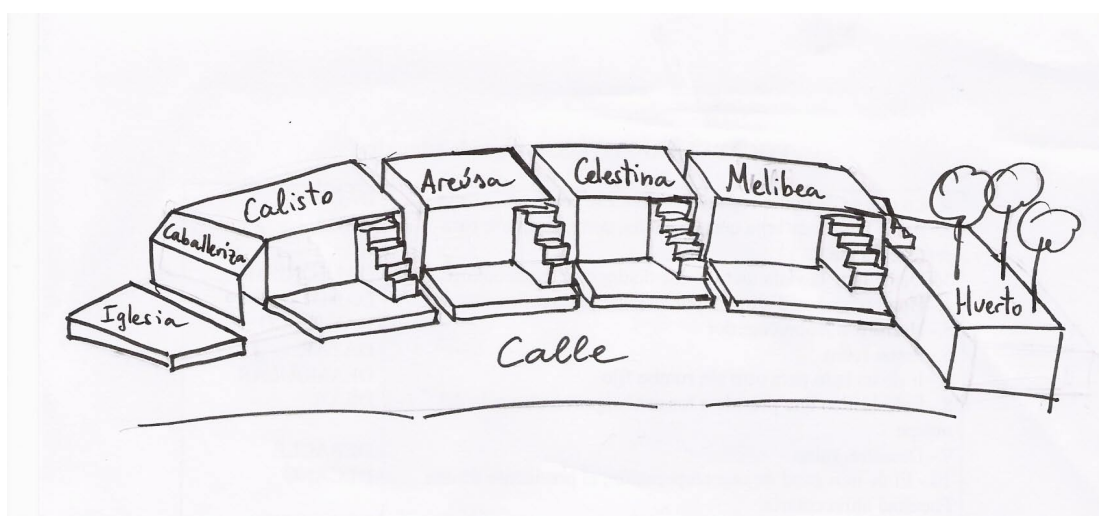 Iglesia
Caballeriza
Calisto
Areúsa
Celestina
Melibea
Huerto
Calle